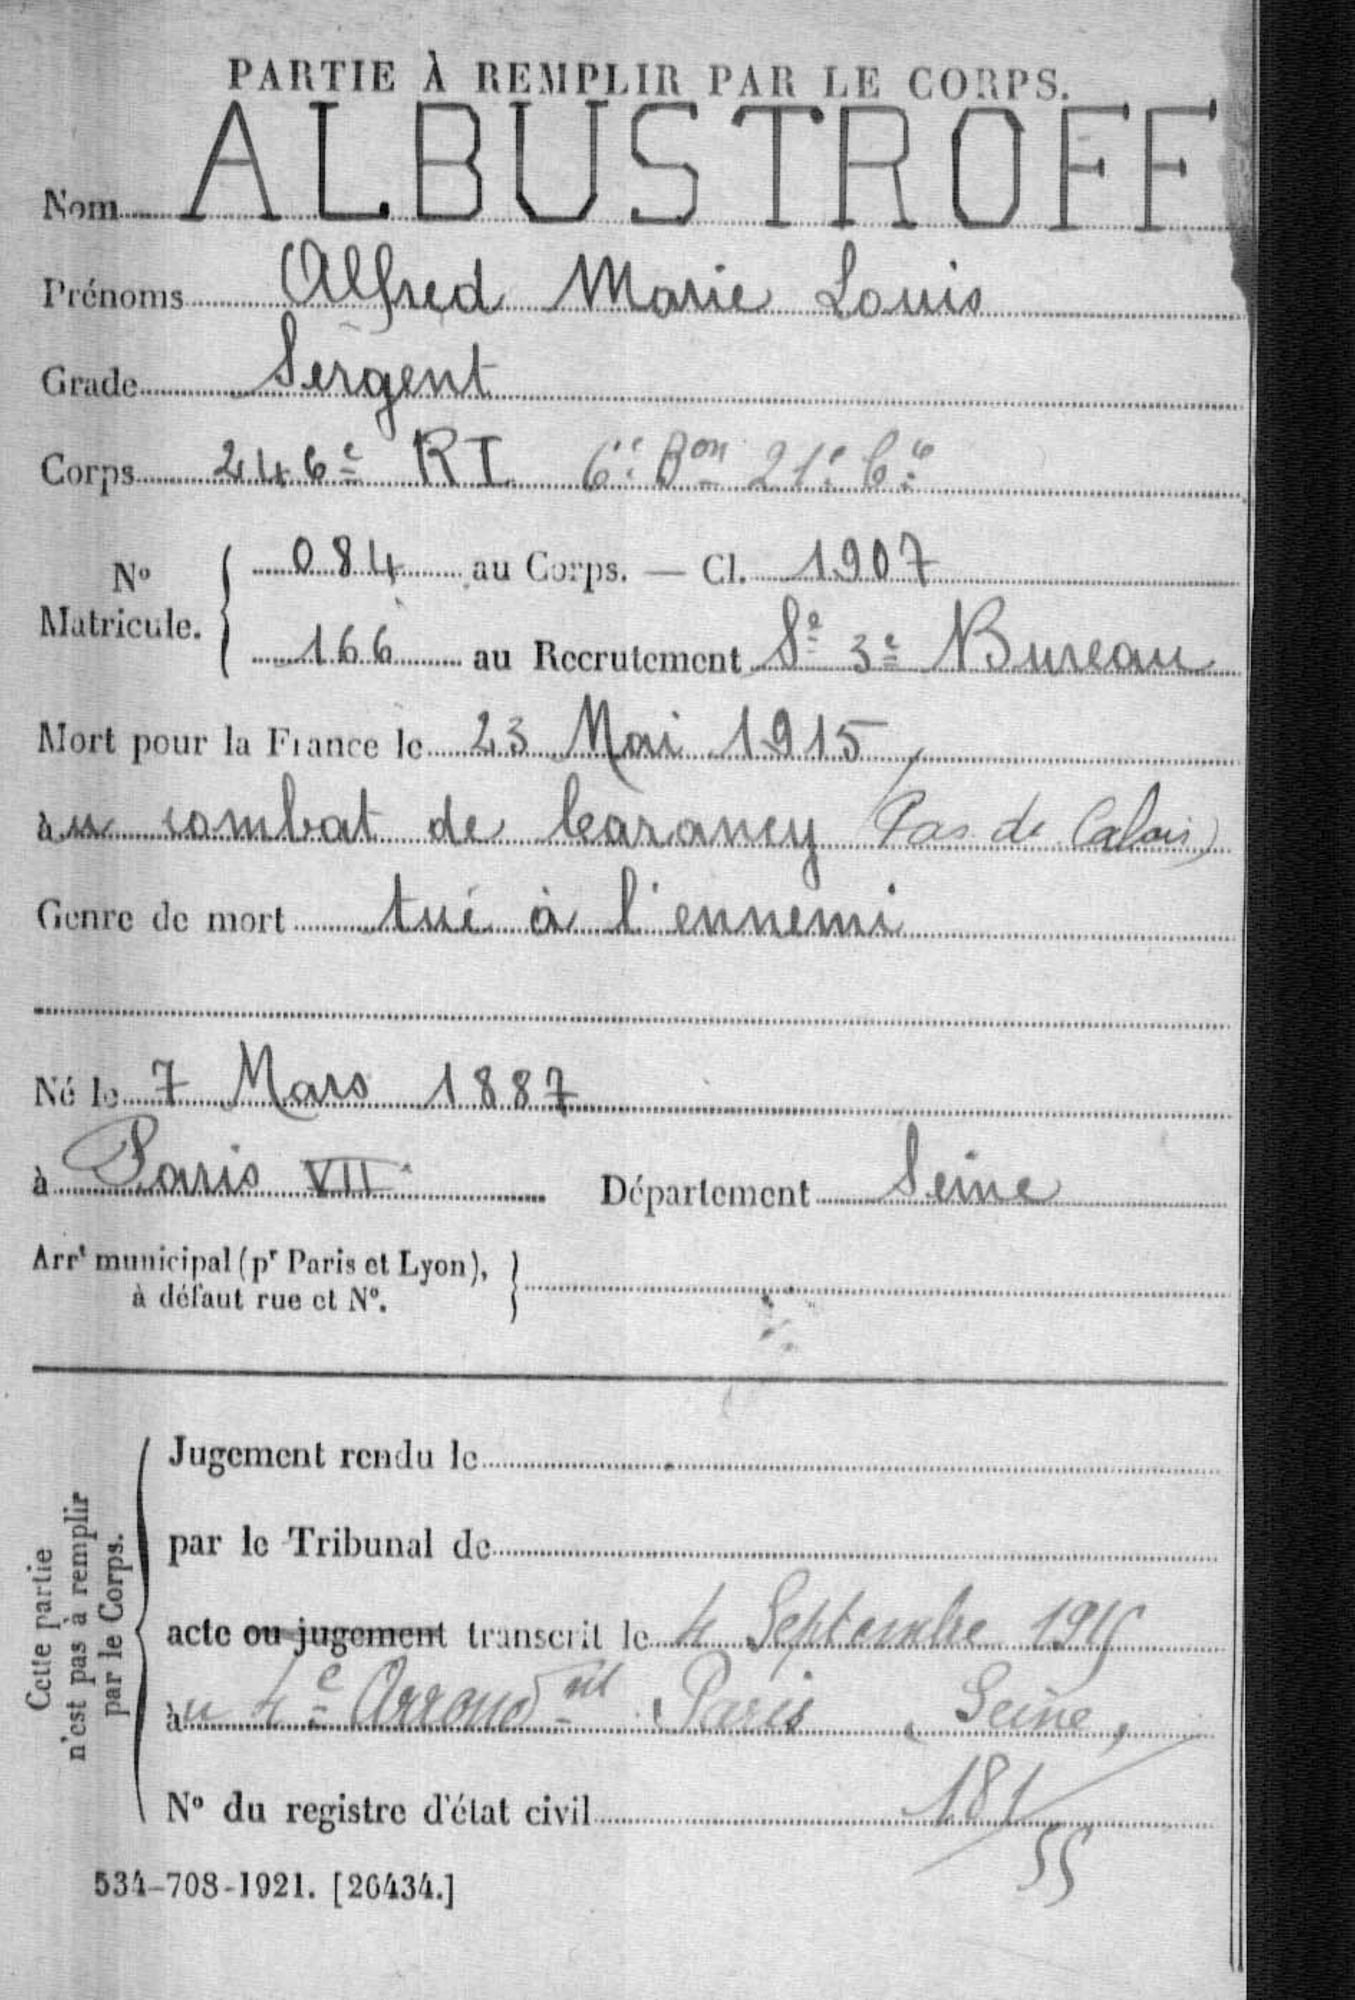 PARTIE À REMPLIR PAR LE CORPS.
Nom ALBUSTROFF
Prénoms Alfred Marie Louis
Grade Sergent
Corps 246e RI 6e Bon 21e Cie
No Matricule. { 084 au Corps. — Cl. 1907
166 au Recrutement Se 3e Bureau
Mort pour la France le 23 Mai 1915
au combat de Carancy (Pas de Calais)
Genre de mort tué à l'ennemi
Né le 7 Mars 1887
à Paris VII Département Seine
Arrt municipal (pr Paris et Lyon), }
à défaut rue et No.
Cette partie
n'est pas à remplir
par le Corps.
Jugement rendu le
par le Tribunal de
acte ou jugement transcrit le 4 Septembre 1915
au 4e Arrondnt Paris, Seine,
No du registre d'état civil 181/55
534-708-1921. [26434.]